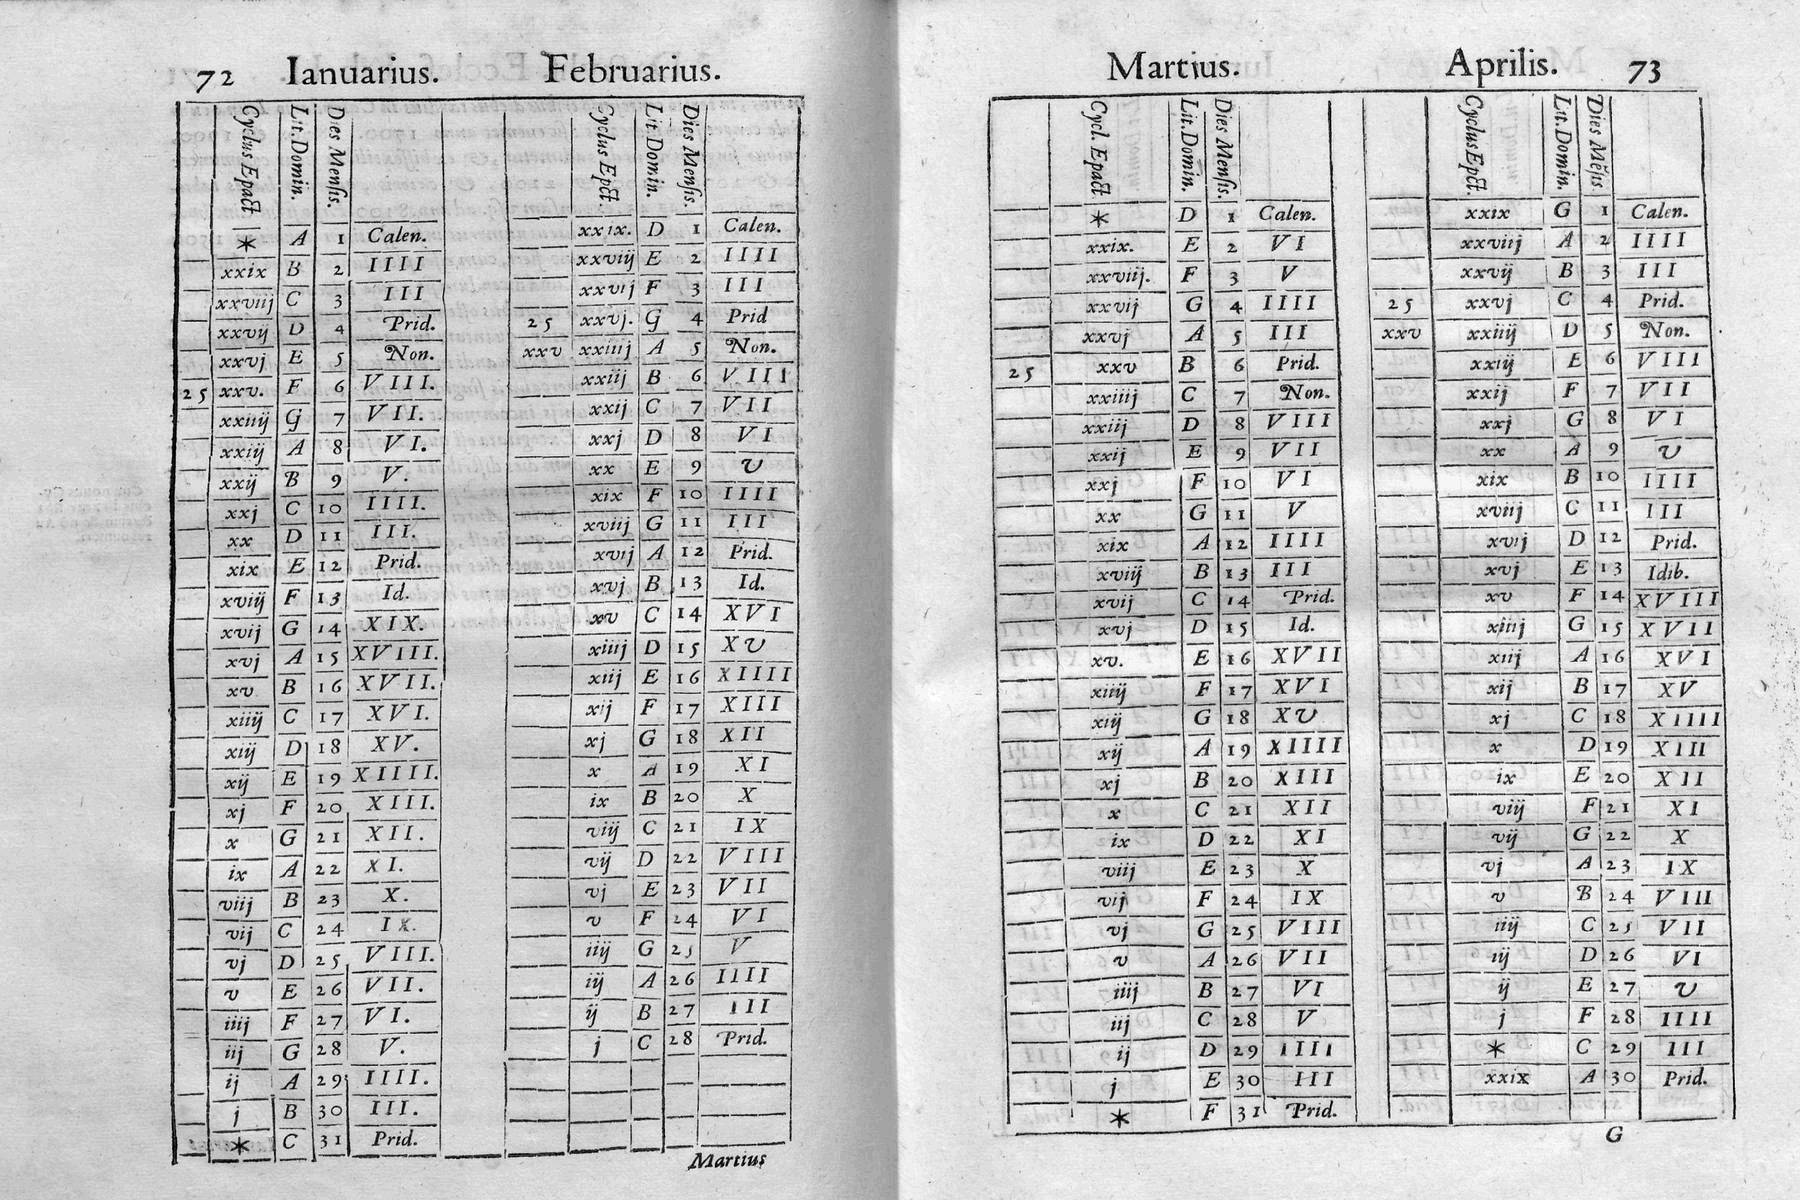 72 Ianuarius. Februarius.
Cyclus Epact Lit. Domin. Dies Mensis. Cyclus Epct. Lit. Domin. Dies Mensis.
* A 1 Calen. xxix. D 1 Calen.
xxix B 2 IIII xxviij E 2 IIII
xxviij C 3 III xxvij F 3 III
xxvij D 4 Prid. 25 xxvj. G 4 Prid
xxvj E 5 Non. xxv xxiiij A 5 Non.
25 xxv. F 6 VIII. xxiij B 6 VIII
xxiiij G 7 VII. xxij C 7 VII
xxiij A 8 VI. xxj D 8 VI
xxij B 9 V. xx E 9 V
xxj C 10 IIII. xix F 10 IIII
xx D 11 III. xviij G 11 III
xix E 12 Prid. xvij A 12 Prid.
xviij F 13 Id. xvj B 13 Id.
xvij G 14 XIX. xv C 14 XVI
xvj A 15 XVIII. xiiij D 15 XV
xv B 16 XVII. xiij E 16 XIIII
xiiij C 17 XVI. xij F 17 XIII
xiij D 18 XV. xj G 18 XII
xij E 19 XIIII. x A 19 XI
xj F 20 XIII. ix B 20 X
x G 21 XII. viij C 21 IX
ix A 22 XI. vij D 22 VIII
viij B 23 X. vj E 23 VII
vij C 24 IX. v F 24 VI
vj D 25 VIII. iiij G 25 V
v E 26 VII. iij A 26 IIII
iiij F 27 VI. ij B 27 III
iij G 28 V. j C 28 Prid.
ij A 29 IIII.
j B 30 III.
* C 31 Prid.
Martius
Martius. Aprilis. 73
Cycl. Epact. Lit. Domin. Dies Mensis. Cyclus Epct. Lit. Domin. Dies Mẽsis
* D 1 Calen. xxix G 1 Calen.
xxix. E 2 VI xxviij A 2 IIII
xxviij. F 3 V xxvij B 3 III
xxvij G 4 IIII 25 xxvj C 4 Prid.
xxvj A 5 III xxv xxiiij D 5 Non.
25 xxv B 6 Prid. xxiij E 6 VIII
xxiiij C 7 Non. xxij F 7 VII
xxiij D 8 VIII xxj G 8 VI
xxij E 9 VII xx A 9 V
xxj F 10 VI xix B 10 IIII
xx G 11 V xviij C 11 III
xix A 12 IIII xvij D 12 Prid.
xviij B 13 III xvj E 13 Idib.
xvij C 14 Prid. xv F 14 XVIII
xvj D 15 Id. xiiij G 15 XVII
xv. E 16 XVII xiij A 16 XVI
xiiij F 17 XVI xij B 17 XV
xiij G 18 XV xj C 18 XIIII
xij A 19 XIIII x D 19 XIII
xj B 20 XIII ix E 20 XII
x C 21 XII viij F 21 XI
ix D 22 XI vij G 22 X
viij E 23 X vj A 23 IX
vij F 24 IX v B 24 VIII
vj G 25 VIII iiij C 25 VII
v A 26 VII iij D 26 VI
iiij B 27 VI ij E 27 V
iij C 28 V j F 28 IIII
ij D 29 IIII * C 29 III
j E 30 III xxix A 30 Prid.
* F 31 Prid.
G